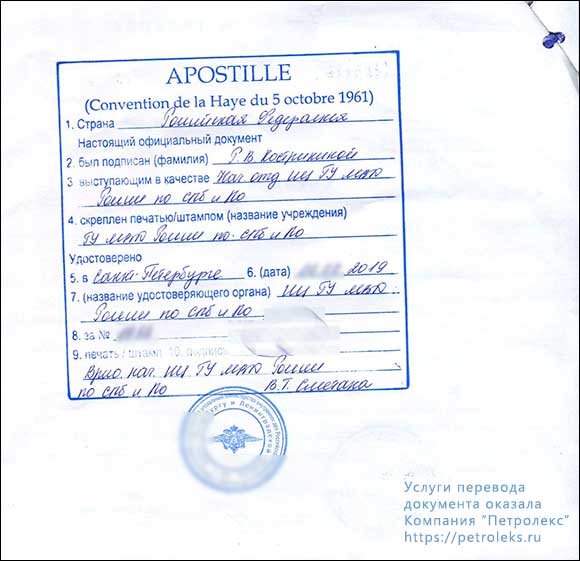 APOSTILLE
(Convention de la Haye du 5 octobre 1961)
1. Страна Российская Федерация
Настоящий официальный документ
2. был подписан (фамилия) Г.В. Кострикиной
3 выступающим в качестве Нач отд ИЦ ГУ МВД
России по СПб и ЛО
4. скреплен печатью/штампом (название учреждения)
ГУ МВД России по СПб и ЛО
Удостоверено
5. в Санкт-Петербурге 6. (дата) 2019
7. (название удостоверяющего органа) ИЦ ГУ МВД
России по СПб и ЛО
8. за №
9. печать / штамп 10. подпись
Врио нач. ИЦ ГУ МВД России
по СПб и ЛО В.Т. Сметана
Услуги перевода
документа оказала
Компания "Петролекс"
https://petroleks.ru